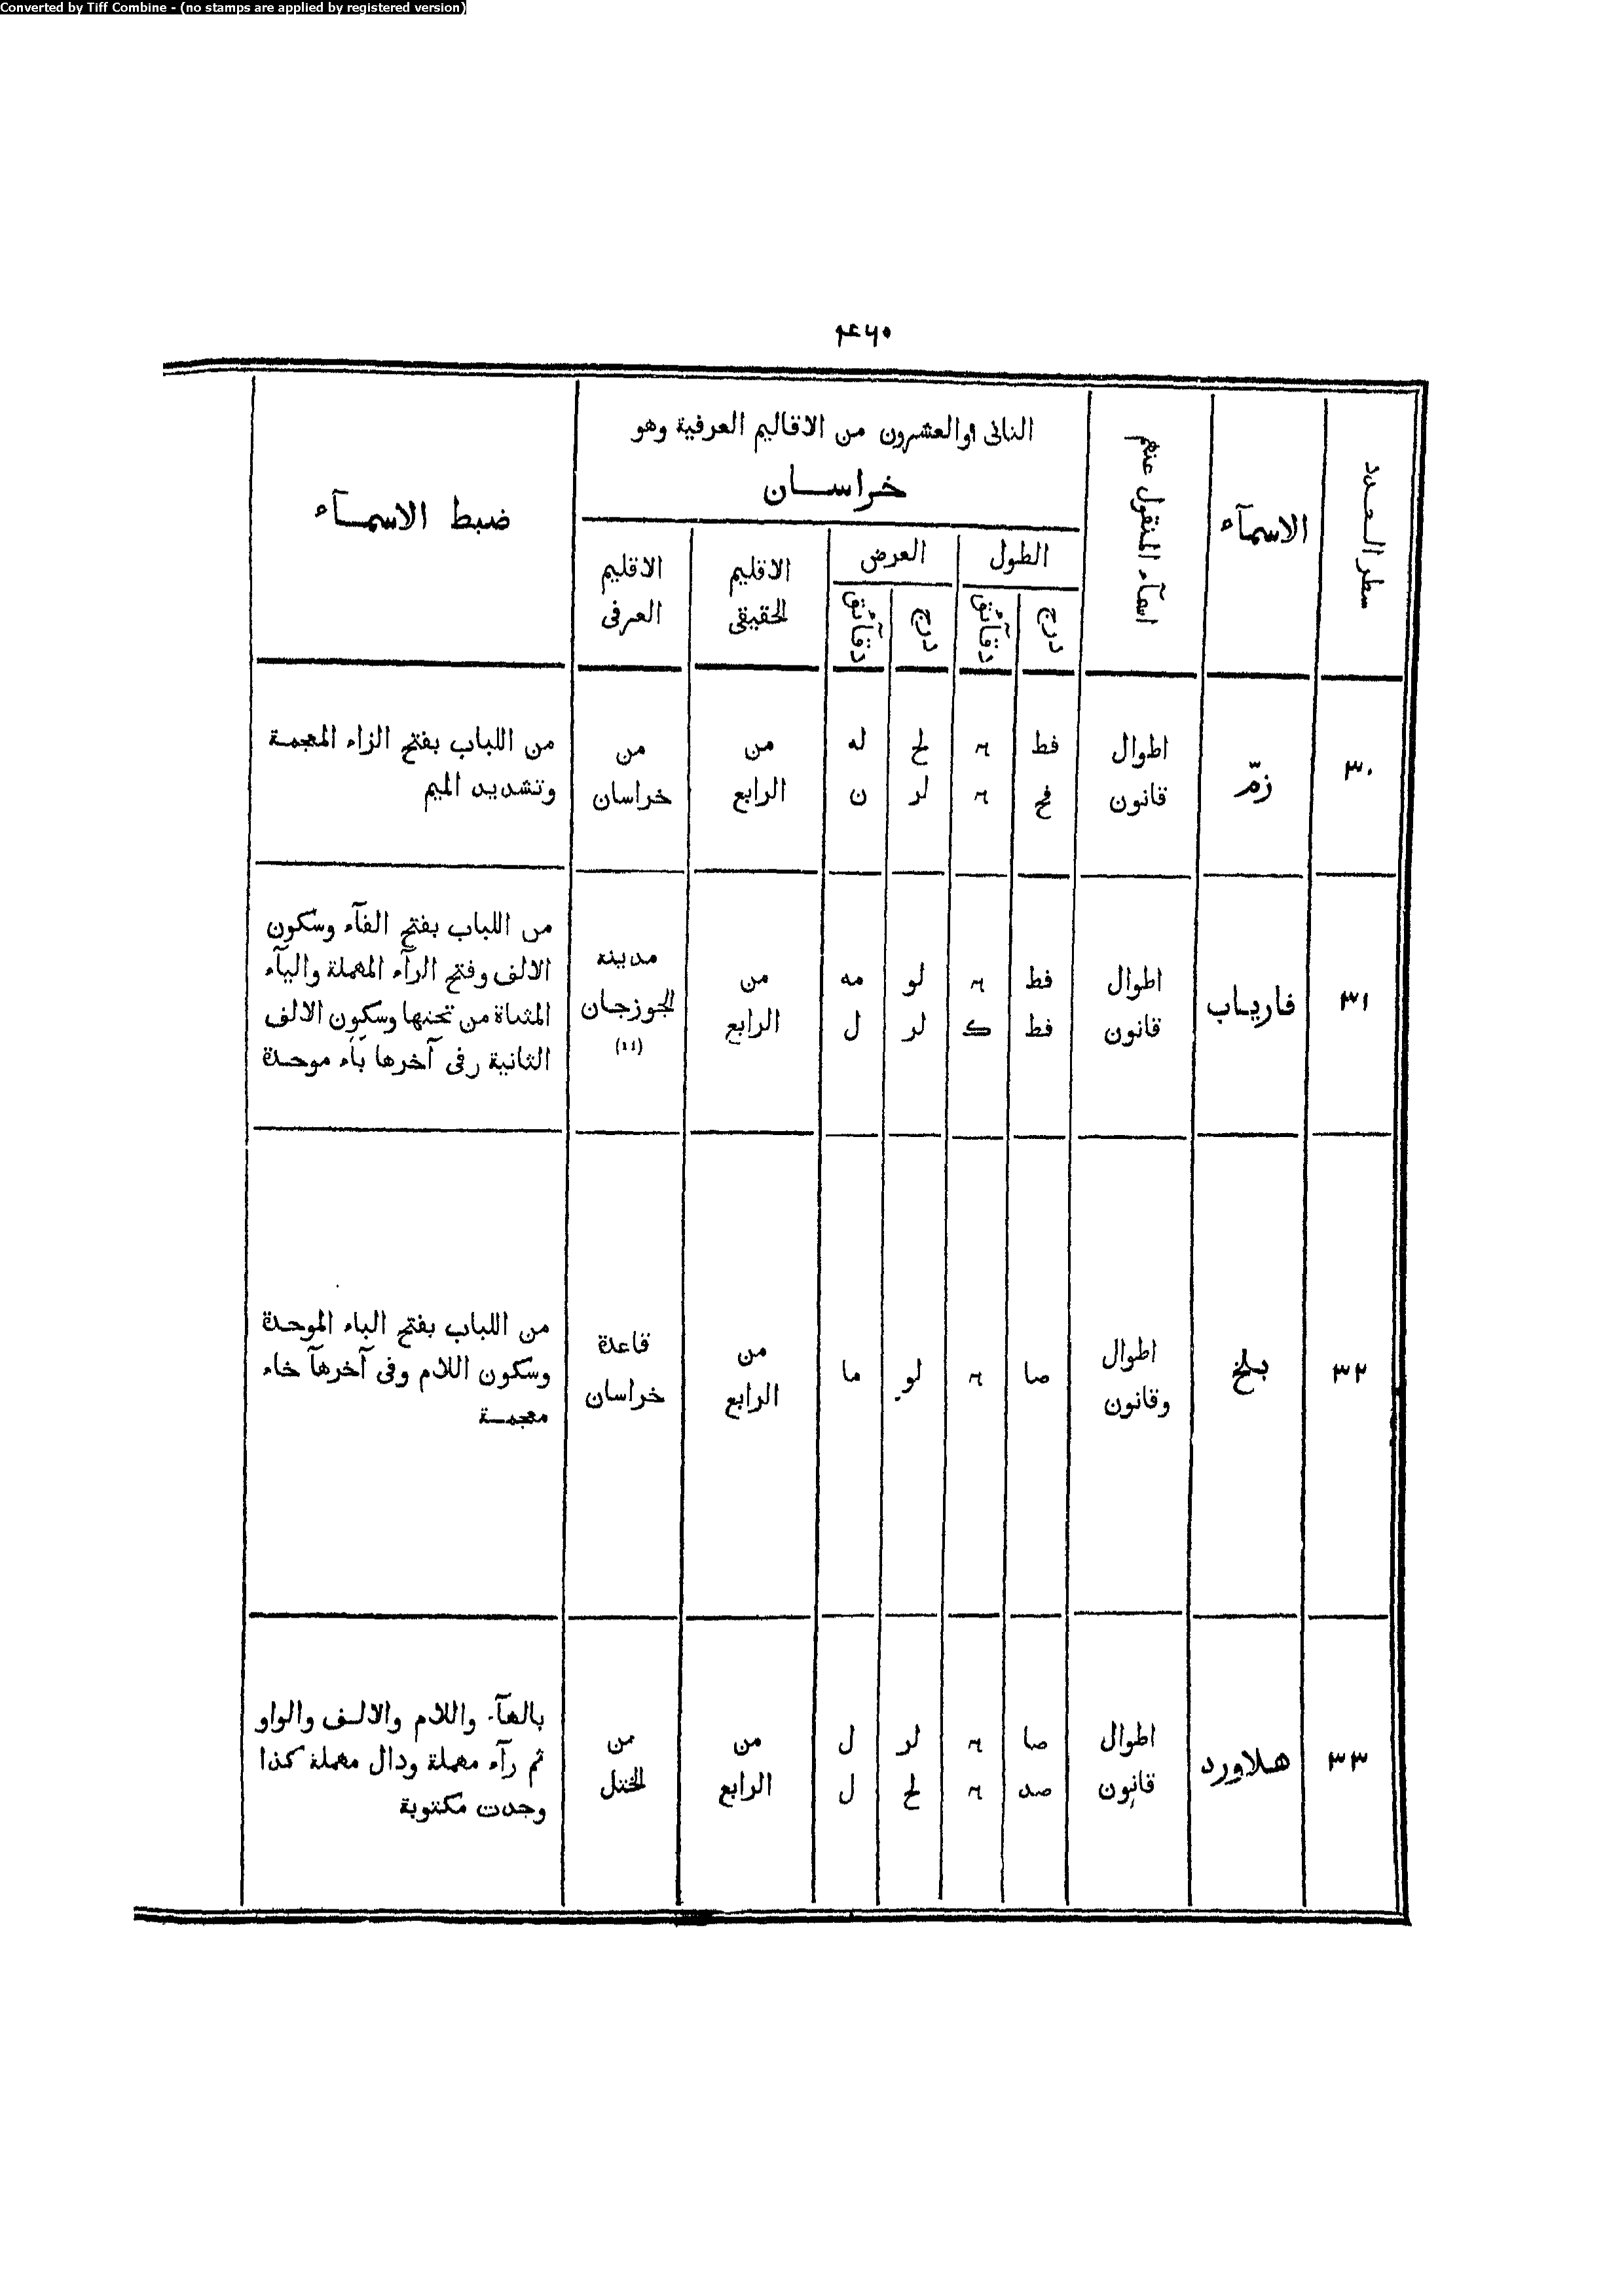 Converted by Tiff Combine - (no stamps are applied by registered version)
۴۶۰
سطر العدد
الاسمآء
اسمآء المنقول عنهم
الثانى والعشرون من الاقاليم العرفية وهو
خراسان
الطول
العرض
درج
دقآئق
درج
دقآئق
الاقليم
الحقيقى
الاقليم
العرفى
ضبط الاسمآء
٣٠
زمّ
اطوال
قانون
فط
فح
لح
لر
له
ن
من
الرابع
من
خراسان
من اللباب بفتح الزاء المعجمة
وتشديد الميم
٣١
فارياب
اطوال
قانون
فط
فط
ك
لو
لر
مه
ل
من
الرابع
مدينة
الجوزجان
(١١)
من اللباب بفتح الفآء وسكون
الالف وفتح الرآء المهملة واليآء
المثناة من تحتها وسكون الالف
الثانية وفى آخرها بآء موحدة
٣٢
بلخ
اطوال
وقانون
صا
لو
ما
من
الرابع
قاعدة
خراسان
من اللباب بفتح الباء الموحدة
وسكون اللام وفى آخرهآ خاء
معجمة
٣٣
هلاورد
اطوال
قانون
صا
صد
لر
لح
ل
ل
من
الرابع
من
الختل
بالهآء واللام والالف والواو
ثم رآء مهملة ودال مهملة كذا
وجدت مكتوبة